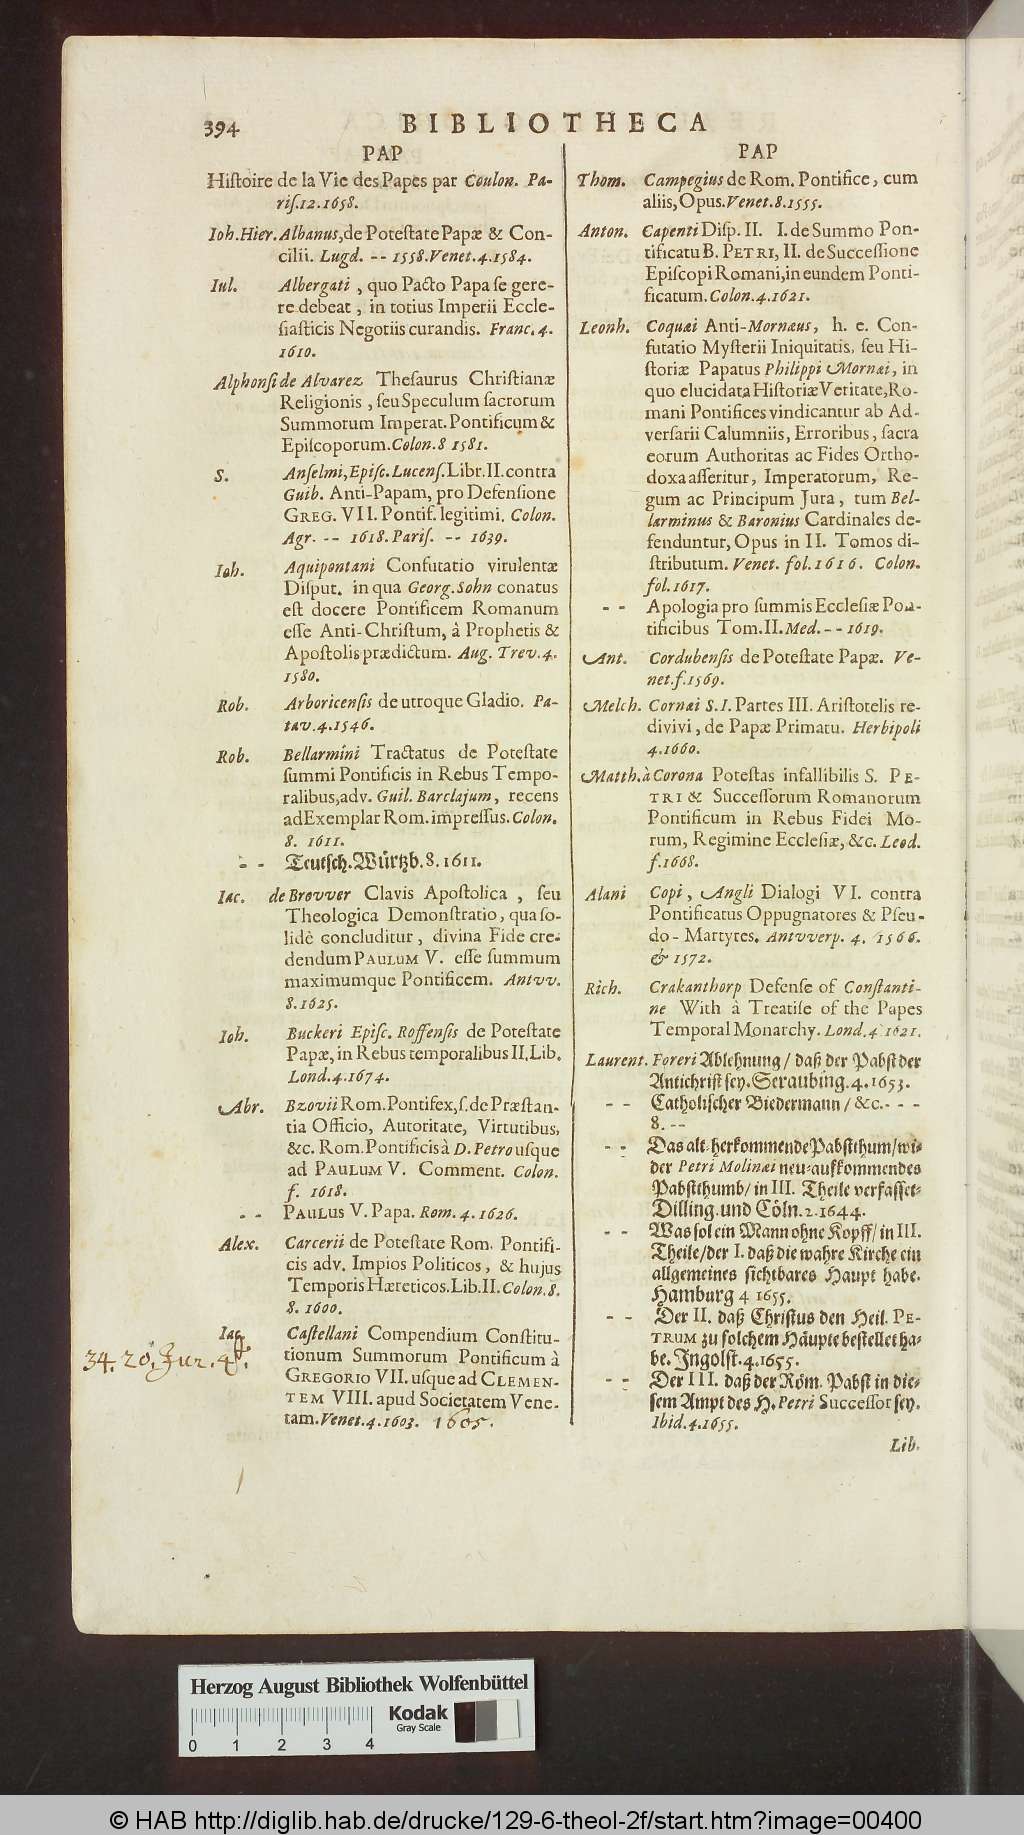 394
BIBLIOTHECA
PAP
Histoire de la Vie des Papes par Coulon. Pa-
ris.12.1658.
Ioh. Hier. Albanus, de Potestate Papæ & Con-
cilii. Lugd. -- 1558. Venet.4.1584.
Iul. Albergati, quo Pacto Papa se gere-
re debeat, in totius Imperii Eccle-
siasticis Negotiis curandis. Franc.4.
1610.
Alphonsi de Alvarez Thesaurus Christianæ
Religionis, seu Speculum sacrorum
Summorum Imperat. Pontificum &
Episcoporum. Colon.8 1581.
S. Anselmi, Episc. Lucens. Libr. II. contra
Guib. Anti-Papam, pro Defensione
GREG. VII. Pontif. legitimi. Colon.
Agr. -- 1618. Paris. -- 1639.
Ioh. Aquipontani Confutatio virulentæ
Disput. in qua Georg. Sohn conatus
est docere Pontificem Romanum
esse Anti-Christum, à Prophetis &
Apostolis prædictum. Aug. Trev.4.
1580.
Rob. Arboricensis de utroque Gladio. Pa-
tav.4.1546.
Rob. Bellarmini Tractatus de Potestate
summi Pontificis in Rebus Tempo-
ralibus, adv. Guil. Barclajum, recens
ad Exemplar Rom. impressus. Colon.
8. 1611.
-- Teutsch. Würtzb. 8. 1611.
Iac. de Brovver Clavis Apostolica, seu
Theologica Demonstratio, qua so-
lidè concluditur, divina Fide cre-
dendum PAULUM V. esse summum
maximumque Pontificem. Antvv.
8.1625.
Ioh. Buckeri Episc. Roffensis de Potestate
Papæ, in Rebus temporalibus II. Lib.
Lond.4.1674.
Abr. Bzovii Rom. Pontifex, s. de Præstan-
tia Officio, Autoritate, Virtutibus,
&c. Rom. Pontificis à D. Petro usque
ad PAULUM V. Comment. Colon.
f. 1618.
-- PAULUS V. Papa. Rom. 4. 1626.
Alex. Carcerii de Potestate Rom. Pontifi-
cis adv. Impios Politicos, & hujus
Temporis Hæreticos. Lib. II. Colon.8.
8. 1600.
Iac. Castellani Compendium Constitu-
34. 20. Jur. 4º.
tionum Summorum Pontificum à
GREGORIO VII. usque ad CLEMEN-
TEM VIII. apud Societatem Vene-
tam. Venet.4.1603. 1605.
PAP
Thom. Campegius de Rom. Pontifice, cum
aliis, Opus. Venet.8.1555.
Anton. Capenti Disp. II. I. de Summo Pon-
tificatu B. PETRI, II. de Successione
Episcopi Romani, in eundem Ponti-
ficatum. Colon.4.1621.
Leonh. Coquæi Anti-Mornæus, h. e. Con-
futatio Mysterii Iniquitatis, seu Hi-
storiæ Papatus Philippi Mornæi, in
quo elucidata Historiæ Veritate, Ro-
mani Pontifices vindicantur ab Ad-
versarii Calumniis, Erroribus, sacra
eorum Authoritas ac Fides Ortho-
doxa asseritur, Imperatorum, Re-
gum ac Principum Jura, tum Bel-
larminus & Baronius Cardinales de-
fenduntur, Opus in II. Tomos di-
stributum. Venet. fol. 1616. Colon.
fol. 1617.
-- Apologia pro summis Ecclesiæ Pon-
tificibus Tom. II. Med. -- 1619.
Ant. Cordubensis de Potestate Papæ. Ve-
net.f.1569.
Melch. Cornæi S.I. Partes III. Aristotelis re-
divivi, de Papæ Primatu. Herbipoli
4.1660.
Matth. à Corona Potestas infallibilis S. PE-
TRI & Successorum Romanorum
Pontificum in Rebus Fidei Mo-
rum, Regimine Ecclesiæ, &c. Leod.
f.1668.
Alani Copi, Angli Dialogi VI. contra
Pontificatus Oppugnatores & Pseu-
do-Martyres. Antvverp. 4. 1566.
& 1572.
Rich. Crakanthorp Defense of Constanti-
ne With à Treatise of the Papes
Temporal Monarchy. Lond. 4 1621.
Laurent. Foreri Ablehnung / daß der Pabst der
Antichrist sey. Straubing. 4. 1653.
-- Catholischer Biedermann / &c. ---
8. --
-- Das alt-herkommende Pabstthum / wi-
der Petri Molinæi neu-aufkommendes
Pabstthumb / in III. Theile verfasset-
Dilling. und Cöln. 2. 1644.
-- Was sol ein Mann ohne Kopff / in III.
Theile / der I. daß die wahre Kirche ein
allgemeines sichtbares Haupt habe.
Hamburg 4 1655.
-- Der II. daß Christus den Heil. PE-
TRUM zu solchem Häupte bestellet ha-
be. Ingolst. 4. 1655.
-- Der III. daß der Röm. Pabst in die-
sem Ampt des H. Petri Successor sey.
Ibid. 4. 1655.
Lib.
Herzog August Bibliothek Wolfenbüttel
Kodak
Gray Scale
0 1 2 3 4
© HAB http://diglib.hab.de/drucke/129-6-theol-2f/start.htm?image=00400